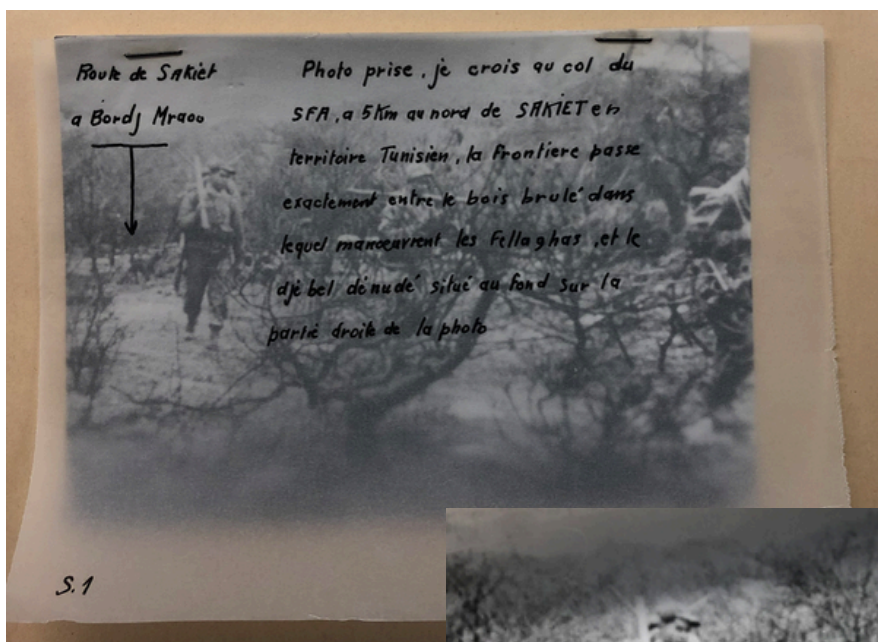 Route de SAkiet
a Bordj Mraou
Photo prise, je crois au col du
SFA, a 5Km au nord de SAKIET en
territoire Tunisien, la Frontiere passe
exactement entre le bois brulé dans
lequel manoeuvrent les Fellaghas, et le
djebel dénudé situé au fond sur la
partie droite de la photo
S.1